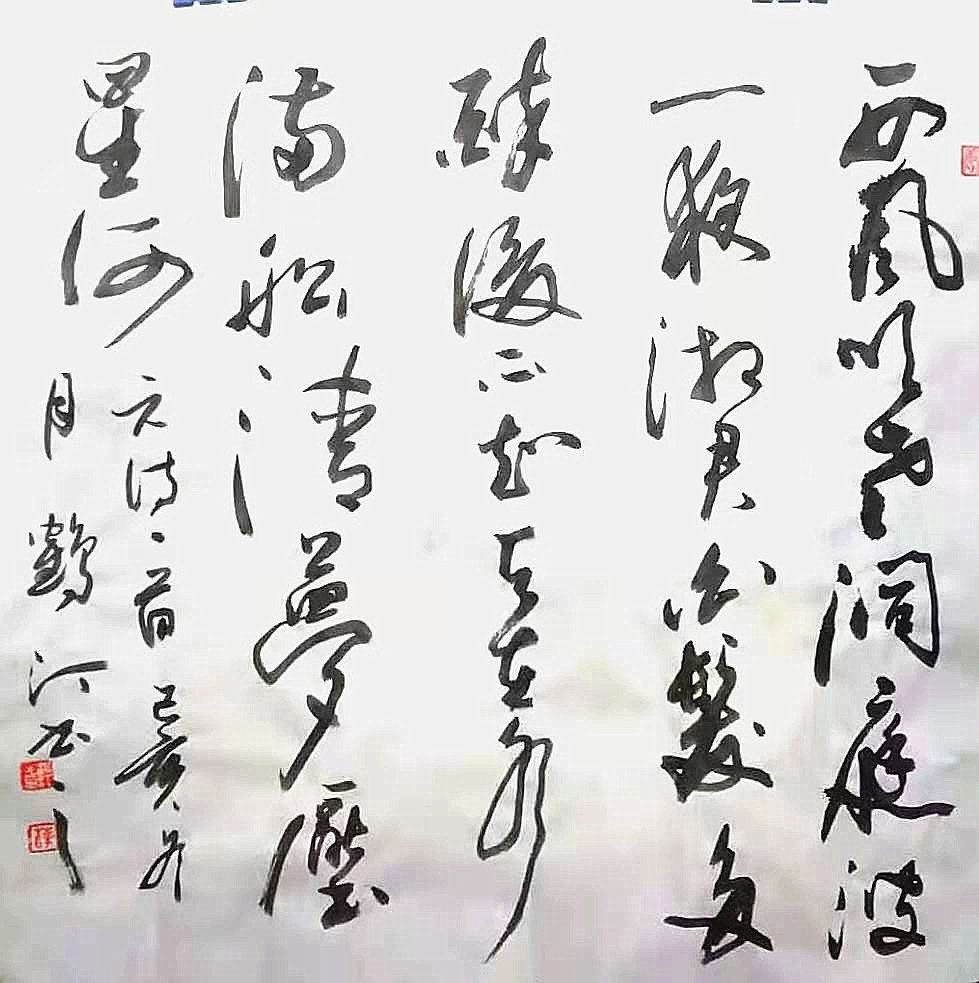 西風吹老洞庭波
一夜湘君白髮多
醉後不知天在水
滿船清夢壓
星河 元詩一首 己亥冬
月 鶴江書